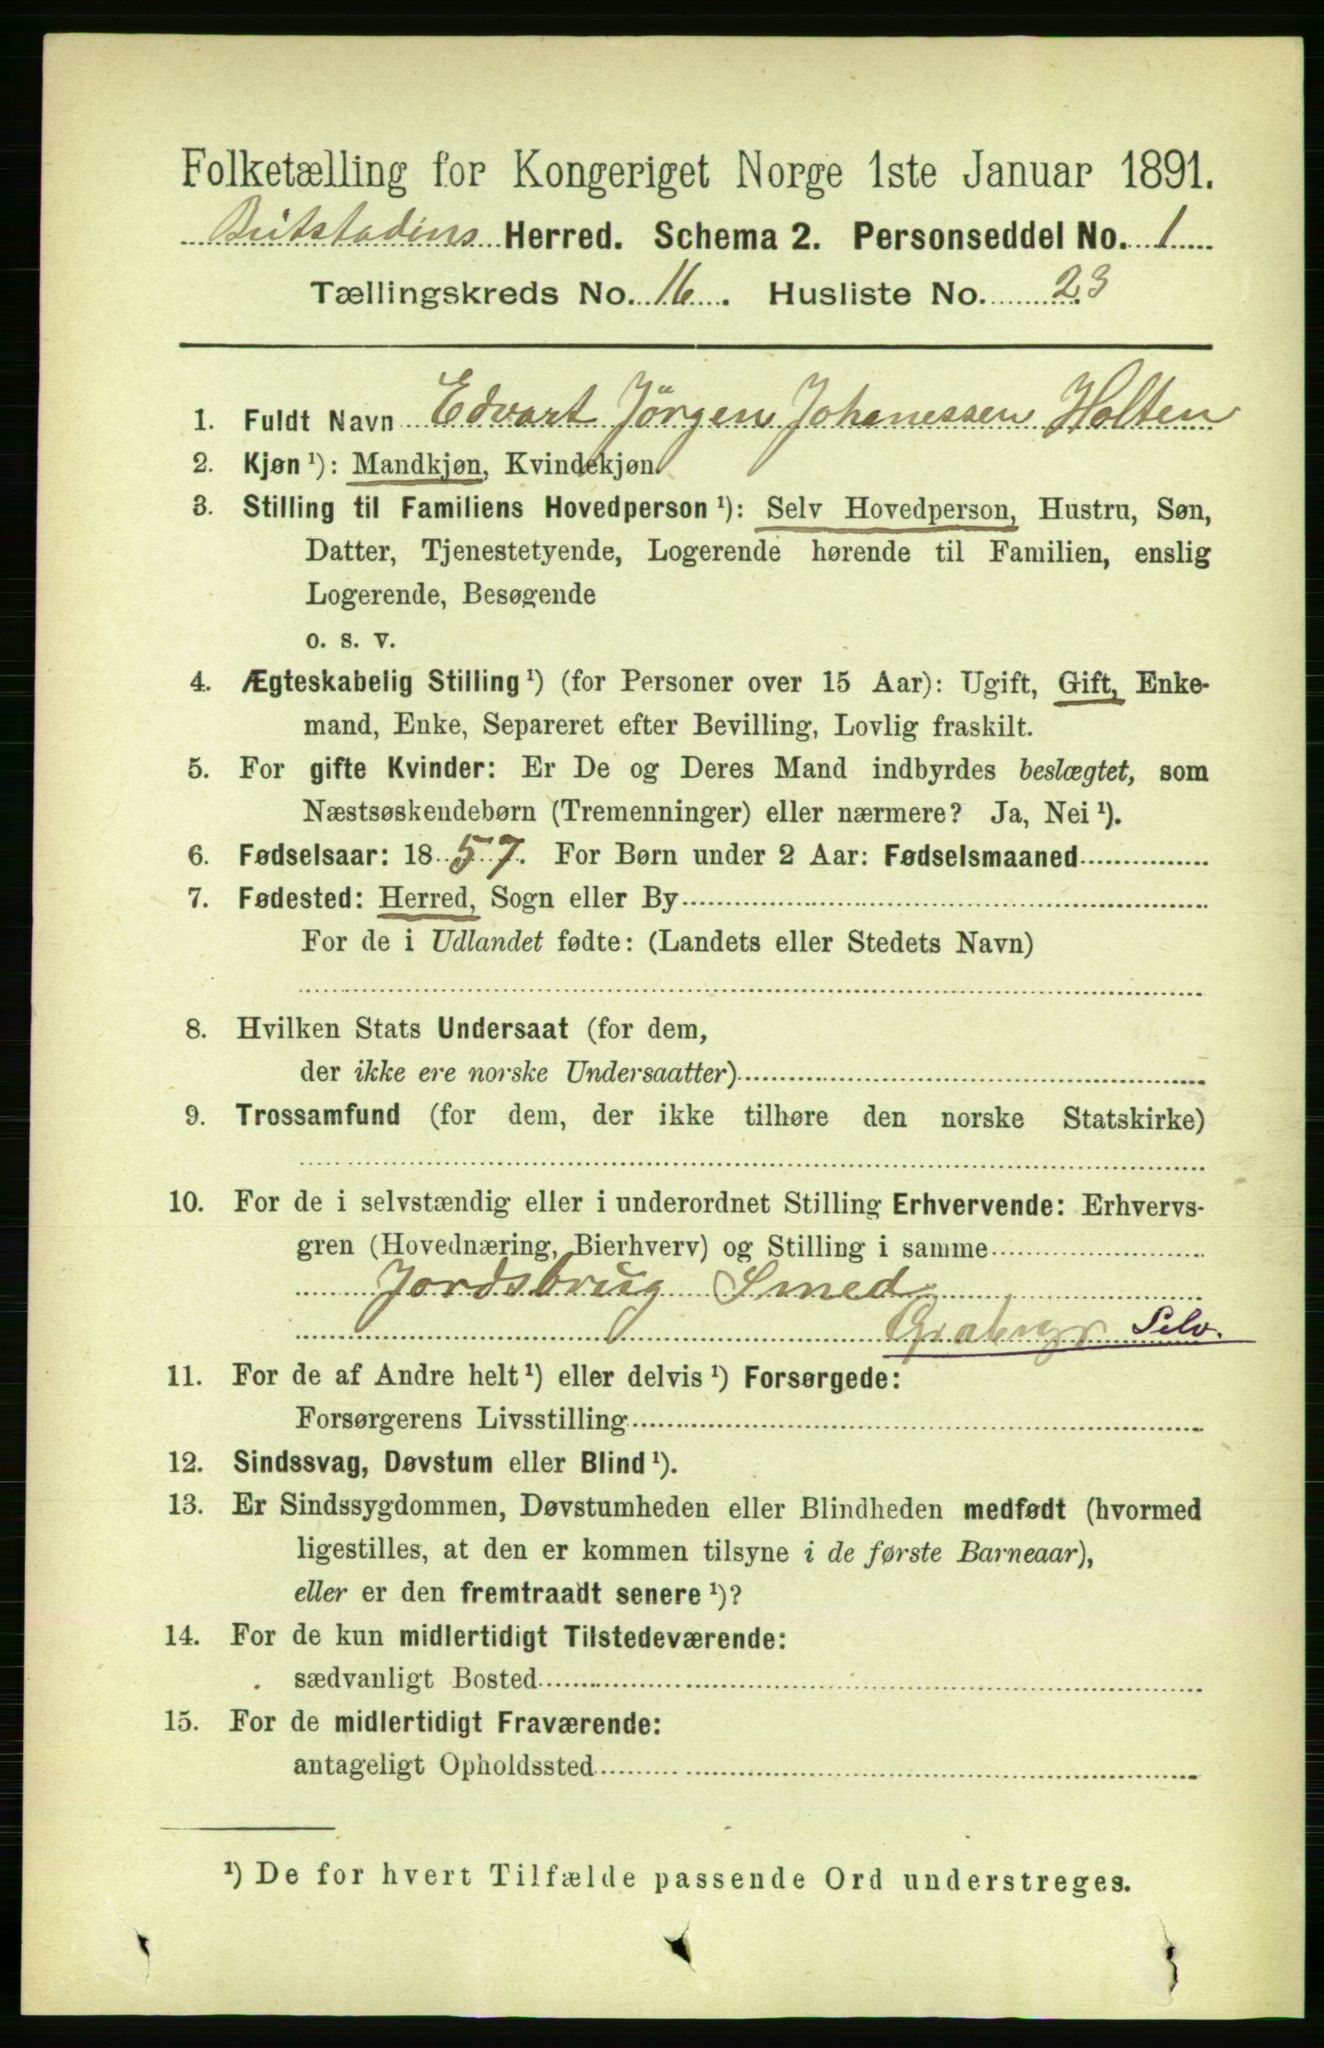 Folketælling for Kongeriget Norge 1ste Januar 1891.
Beitstadens Herred. Schema 2. Personseddel No. 1
Tællingskreds No. 16. Husliste No. 23
1. Fuldt Navn Edvart Jörgen Johanessen Holten
2. Kjøn ¹): Mandkjøn, Kvindekjøn.
3. Stilling til Familiens Hovedperson ¹): Selv Hovedperson, Hustru, Søn,
Datter, Tjenestetyende, Logerende hørende til Familien, enslig
Logerende, Besøgende
o. s. v.
4. Ægteskabelig Stilling ¹) (for Personer over 15 Aar): Ugift, Gift, Enke-
mand, Enke, Separeret efter Bevilling, Lovlig fraskilt.
5. For gifte Kvinder: Er De og Deres Mand indbyrdes beslægtet, som
Næstsøskendebørn (Tremenninger) eller nærmere? Ja, Nei ¹).
6. Fødselsaar: 1857. For Børn under 2 Aar: Fødselsmaaned
7. Fødested: Herred, Sogn eller By
For de i Udlandet fødte: (Landets eller Stedets Navn)
8. Hvilken Stats Undersaat (for dem,
der ikke ere norske Undersaatter)
9. Trossamfund (for dem, der ikke tilhøre den norske Statskirke)
10. For de i selvstændig eller i underordnet Stilling Erhvervende: Erhvervs-
gren (Hovednæring, Bierhverv) og Stilling i samme
Jordsbrug Smed
Selv.
11. For de af Andre helt ¹) eller delvis ¹) Forsørgede:
Forsørgerens Livsstilling
12. Sindssvag, Døvstum eller Blind ¹).
13. Er Sindssygdommen, Døvstumheden eller Blindheden medfødt (hvormed
ligestilles, at den er kommen tilsyne i de første Barneaar),
eller er den fremtraadt senere ¹)?
14. For de kun midlertidigt Tilstedeværende:
sædvanligt Bosted
15. For de midlertidigt Fraværende:
antageligt Opholdssted
¹) De for hvert Tilfælde passende Ord understreges.